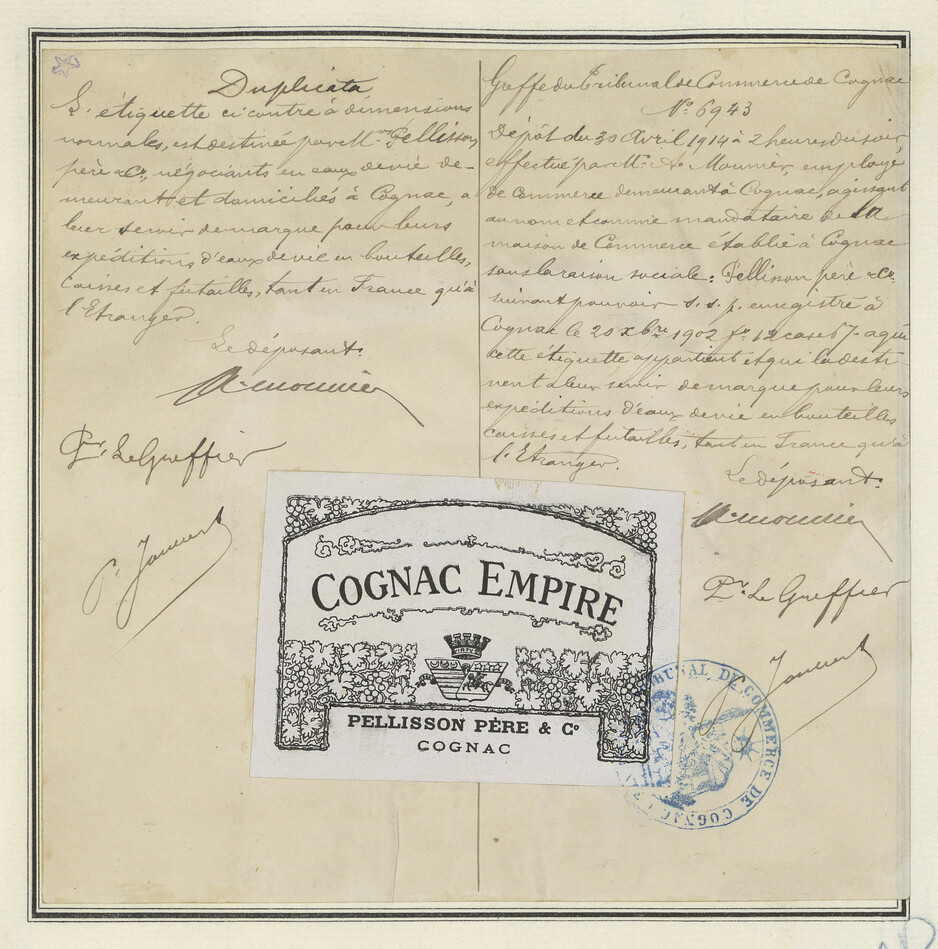 Duplicata
L'étiquette ci contre à dimensions
normales, est destinée par M.rs Pellisson
père & Co, négociants en eaux de vie de-
meurant et domiciliés à Cognac, a
leur servir de marque pour leurs
expéditions d'eaux de vie en bouteilles,
caisses et futailles, tant en France qu'à
l'Etranger.
Le déposant:
A. Mounier
Pr. Le Greffier
Greffe du Tribunal de Commerce de Cognac
No 6943
Dépôt du 30 Avril 1914 à 2 heures du soir
effectué par Mr. A. Mounier, employé
de Commerce demeurant à Cognac, agissant
au nom et comme mandataire de la
maison de Commerce établie à Cognac
sous la raison sociale: Pellisson père & Co.
suivant pouvoir s. s. p. enregistré à
Cognac le 20 xbre 1902 fo 12 case 67- a qui
cette étiquette appartient et qui la desti-
nent a leur servir de marque pour leurs
expéditions d'eaux de vie en bouteilles
caisses et futailles, tant en France qu'à
l'Etranger.
Le déposant:
A. Mounier
Pr. Le Greffier
COGNAC EMPIRE
PELLISSON PÈRE & Co
COGNAC
TRIBUNAL DE COMMERCE DE COGNAC